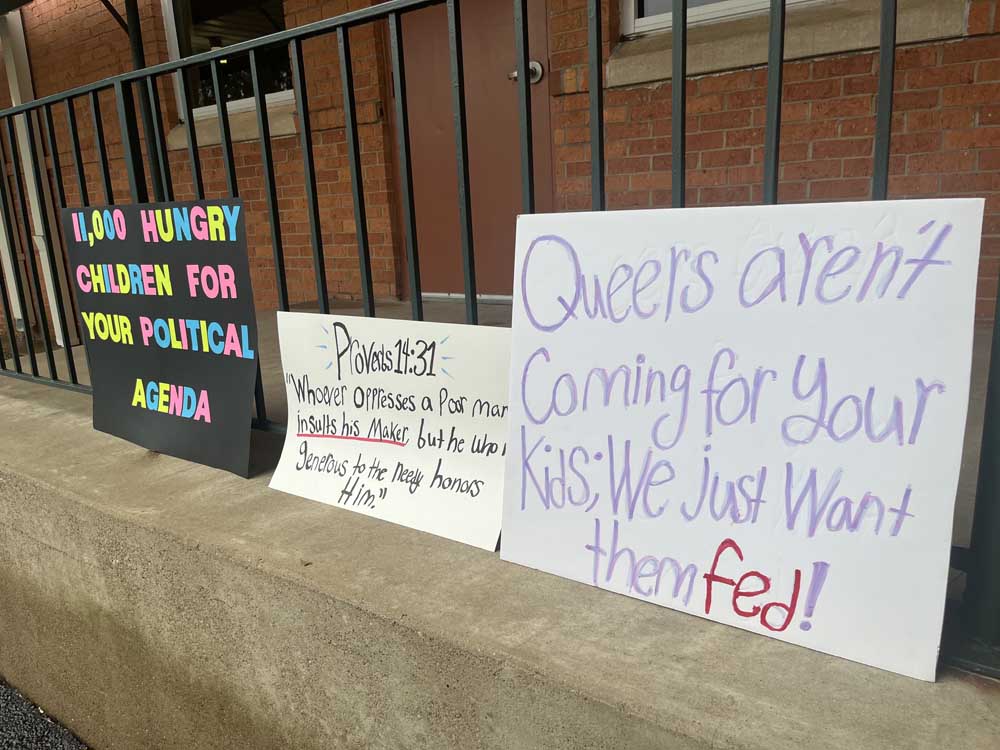 11,000 HUNGRY
CHILDREN FOR
YOUR POLITICAL
AGENDA
Proverbs 14:31
"Whoever oppresses a Poor man
insults his Maker, but he who
generous to the needy honors
Him."
Queers aren't
Coming for Your
Kids; We Just Want
them fed!